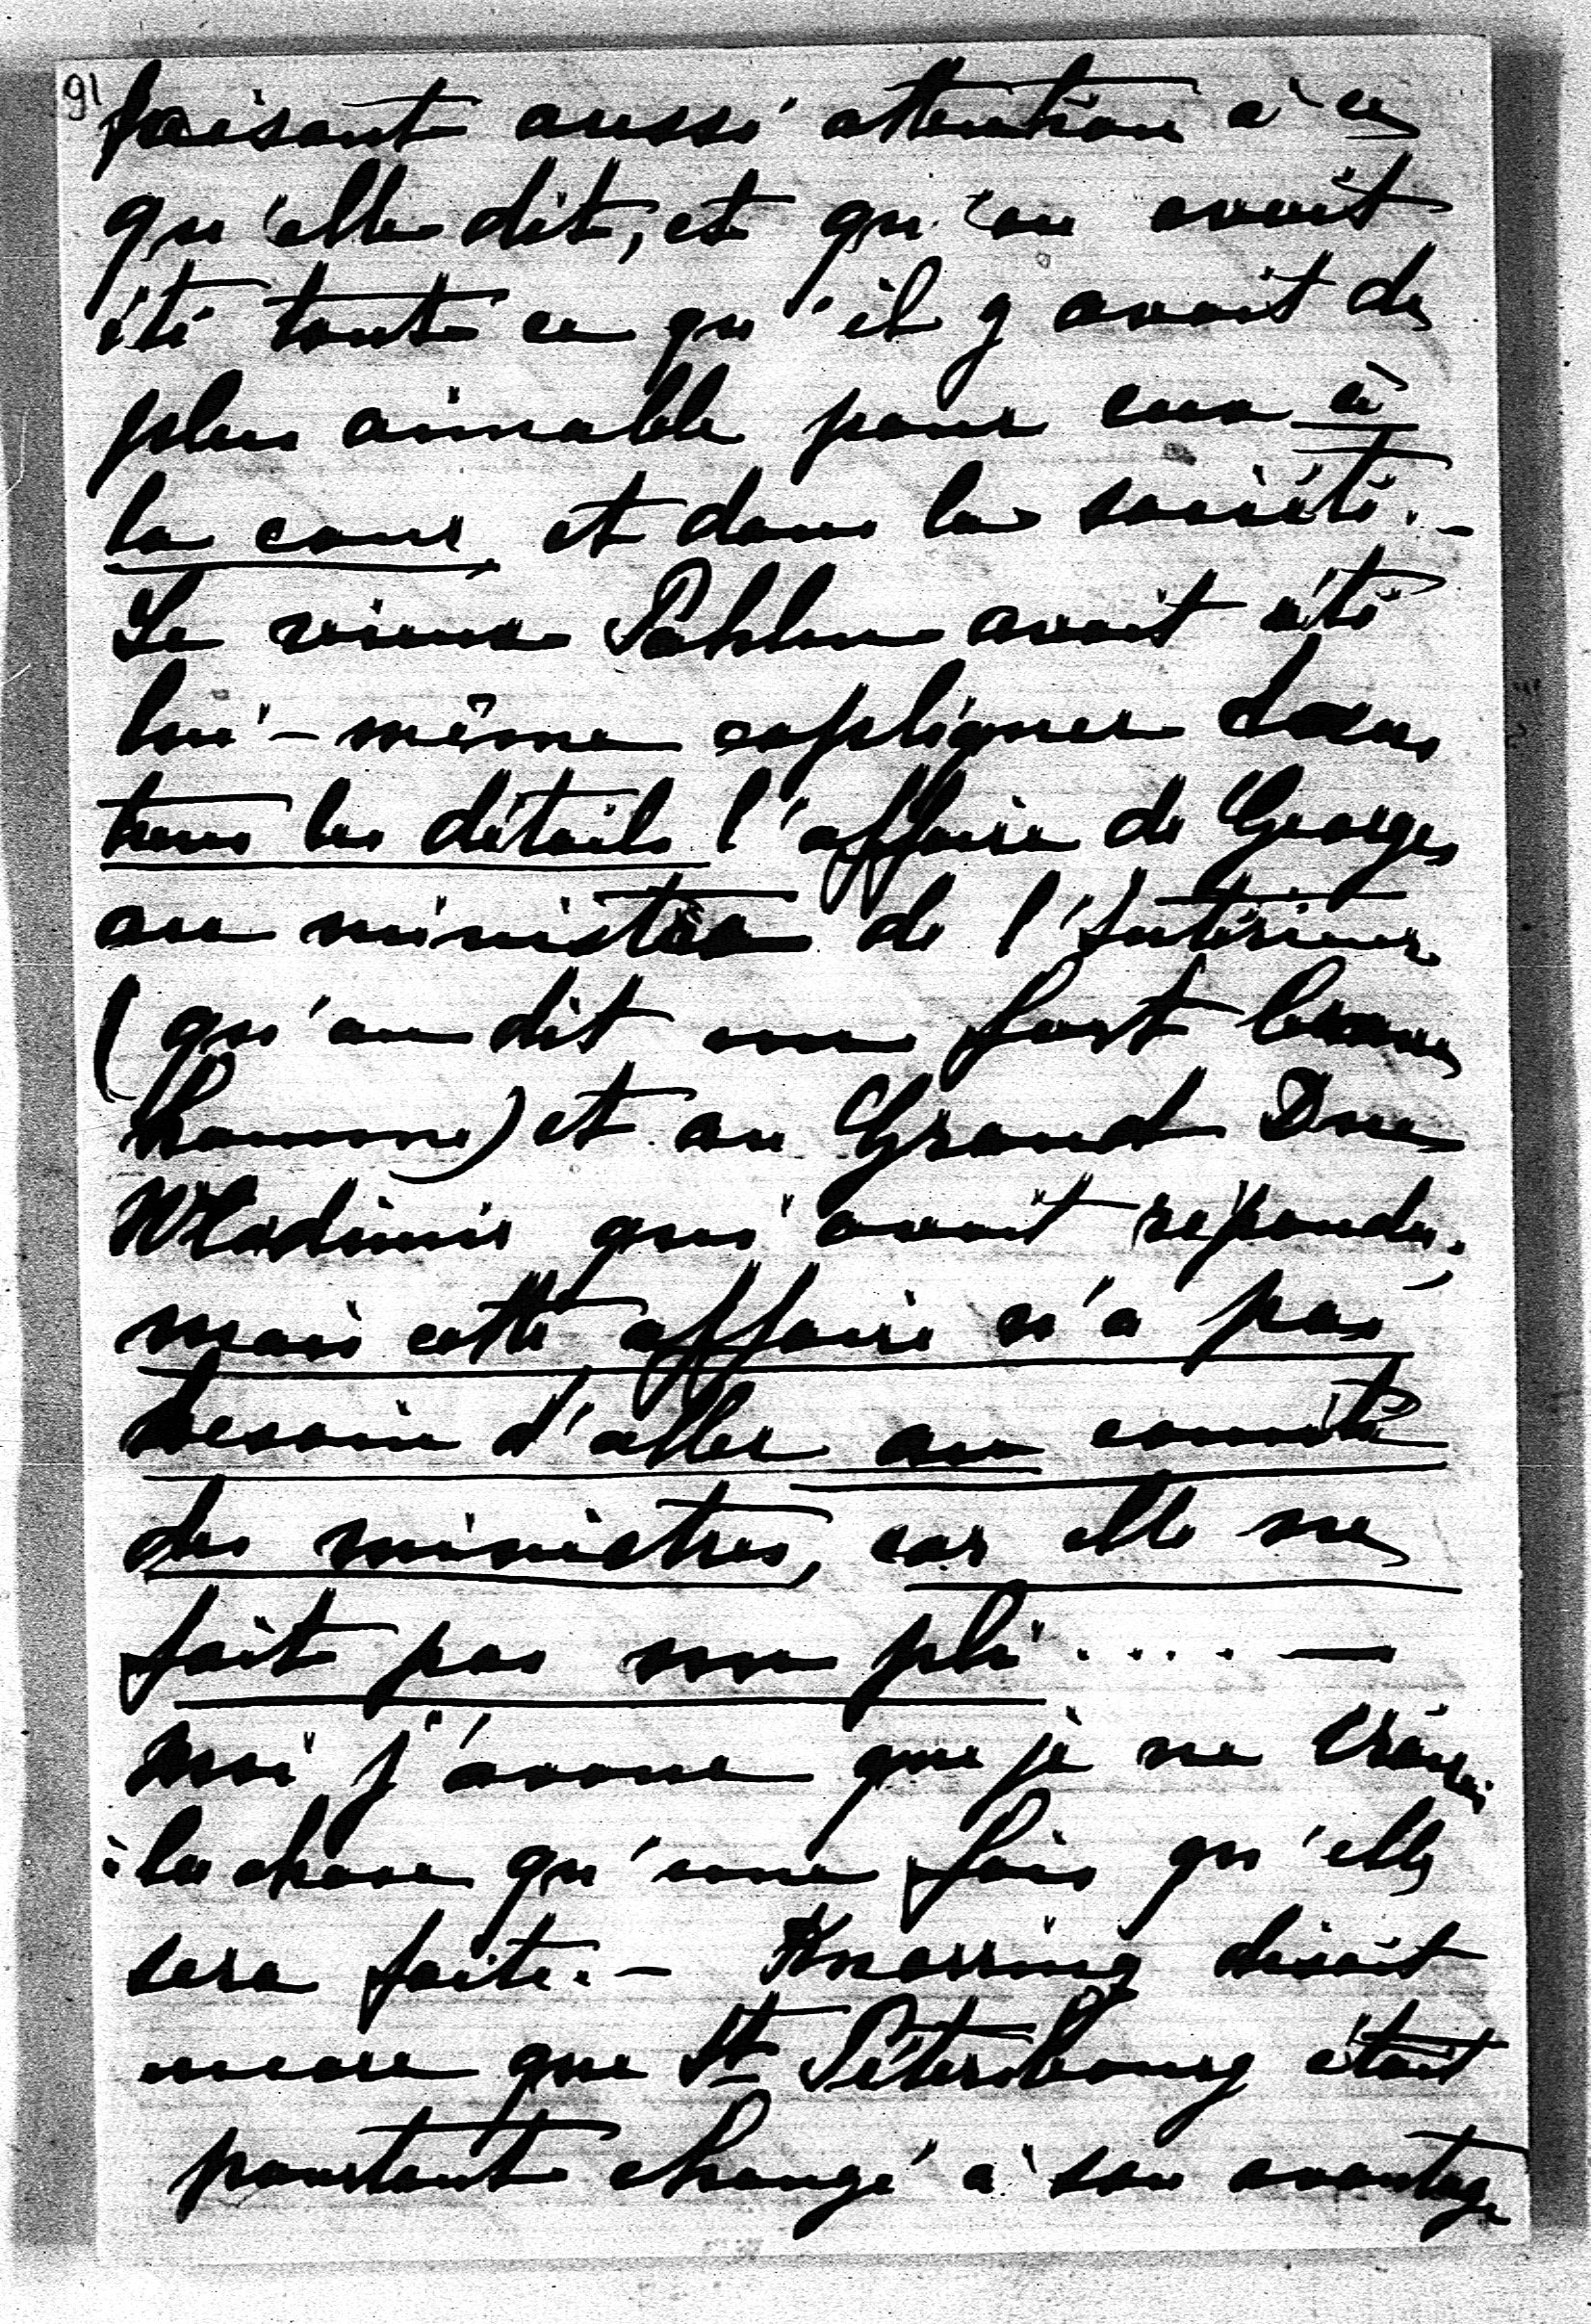 91
faisant aussi attention à ce
qu'elle dit, et qu'on avait
été tout ce qu'il y avait de
plus aimable pour eux à
la cour, et dans la société. –
Le vieux Pahlen avait été
lui-même expliquer dans
tous les détails l'affaire de Georges
au ministre de l'Intérieur
(qu'on dit un fort brave
homme) et au Grand Duc
Wladimir qui avait répondu;
mais cette affaire n'a pas
besoin d'aller au comité
des ministres, car elle ne
fait pas un pli . . . . —
Moi j'avoue que je ne croirai
à la chose qu'une fois qu'elle
sera faite. – Knorring disait
encore que St Pétersbourg était
pourtant changé à son avantage